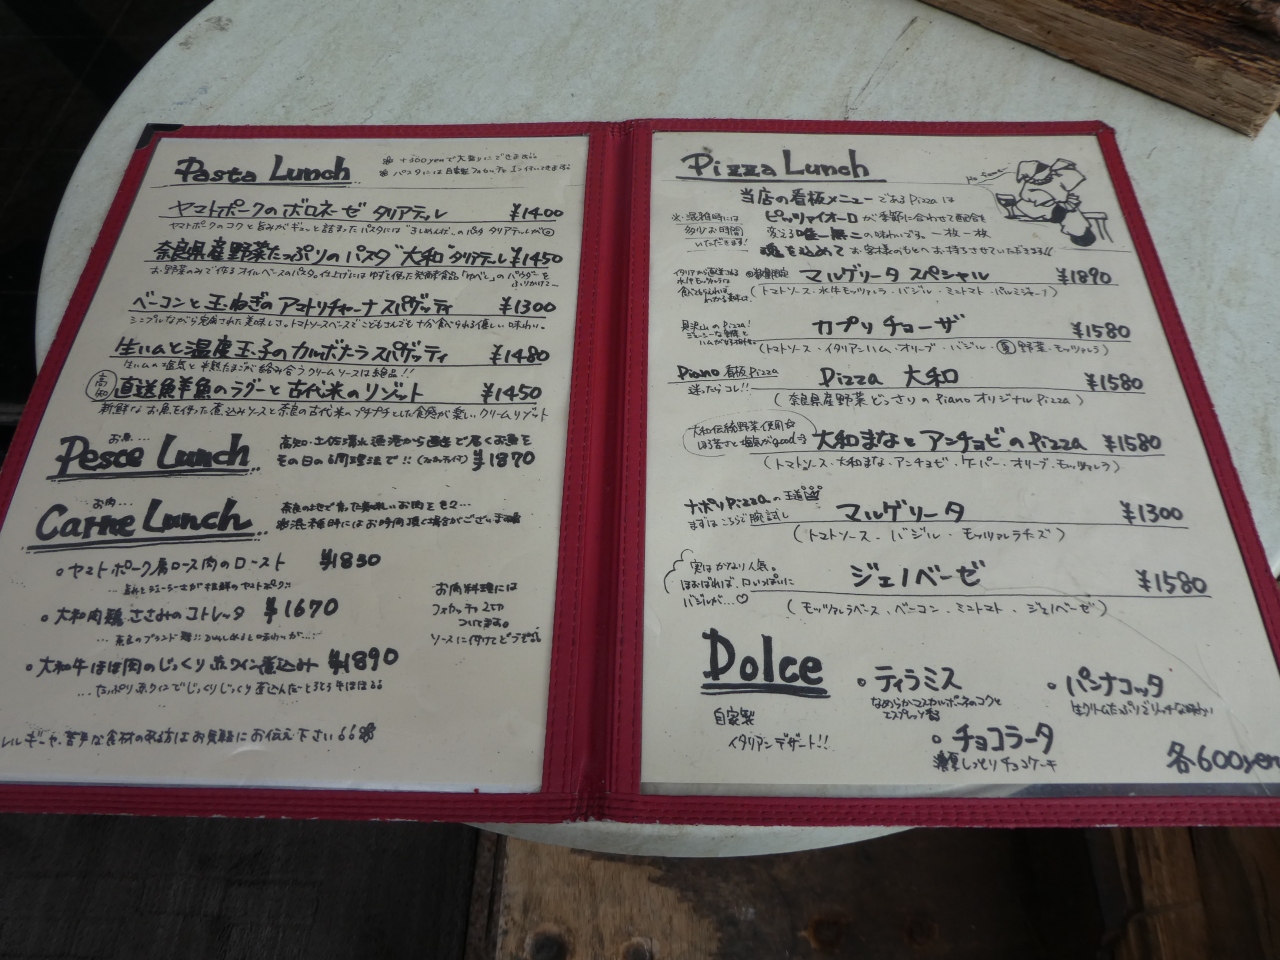 Pasta Lunch
ヤマトポークのボロネーゼ タリアテッレ ¥1400
奈良県産野菜たっぷりのパスタ"大和"タリアテッレ ¥1450
ベーコンと玉ねぎのアマトリチャーナスパゲッティ ¥1300
シンプルながら完成された美味しさ。トマトソースベースでこどもさんでも十分食べられる優しい味わい。
生ハムと温度玉子のカルボナーラスパゲッティ ¥1480
生ハムの塩気と半熟たまごが絡み合うクリームソースは絶品!!
高知 直送鮮魚のラグーと古代米のリゾット ¥1450
新鮮なお魚を使った煮込みソースと奈良の古代米のプチプチとした食感が楽しいクリームリゾット
お魚...
Pesce Lunch
高知・土佐清水漁港から直送で届くお魚を
その日の調理法で!! ¥1870
お肉...
Carne Lunch
ヤマトポーク肩ロース肉のロースト ¥1830
大和肉鶏ささみのコトレッタ ¥1670
大和牛ほほ肉のじっくり赤ワイン煮込み ¥1890
お肉料理には
フォカッチャ
ついてます。
ソースに付けてどうぞ。
苦手な食材のある方はお気軽にお伝え下さい
Pizza Lunch
当店の看板メニューであるPizzaは
ピッツァイオーロが季節に合わせて配合を
変える唯一無二の味わいです。一枚一枚
魂を込めてお客様のもとへお持ちさせていただきます!!
※混雑時には
多少お時間
いただきます!
マルゲリータ スペシャル ¥1890
(トマトソース・水牛モッツァレラ・バジル・ミニトマト・パルミジャーノ)
カプリチョーザ ¥1580
(トマトソース・イタリアンハム・オリーブ・バジル・夏野菜・モッツァレラ)
Piano 看板Pizza
迷ったらコレ!!
Pizza 大和 ¥1580
(奈良県産野菜どっさりのPianoオリジナルPizza)
大和伝統野菜使用☆
ほろ苦さと塩気がgood
大和まなとアンチョビのPizza ¥1580
(トマトソース・大和まな・アンチョビ・ケーパー・オリーブ・モッツァレラ)
ナポリPizzaの王道
まずはこちらで腕試し
マルゲリータ ¥1300
(トマトソース・バジル・モッツァレラチーズ)
実はかなり人気。
ほおばれば、口いっぱいに
バジルが...♡
ジェノベーゼ ¥1580
(モッツァレラベース・ベーコン・ミニトマト・ジェノベーゼ)
Dolce
自家製
イタリアンデザート!!
ティラミス
なめらかマスカルポーネのコクと
エスプレッソ香
パンナコッタ
チョコラータ
濃厚しっとりチョコケーキ
各600yen